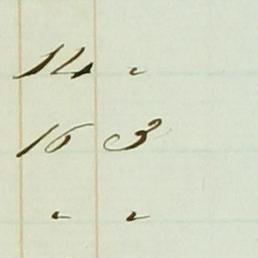 14 "
16 3
" "